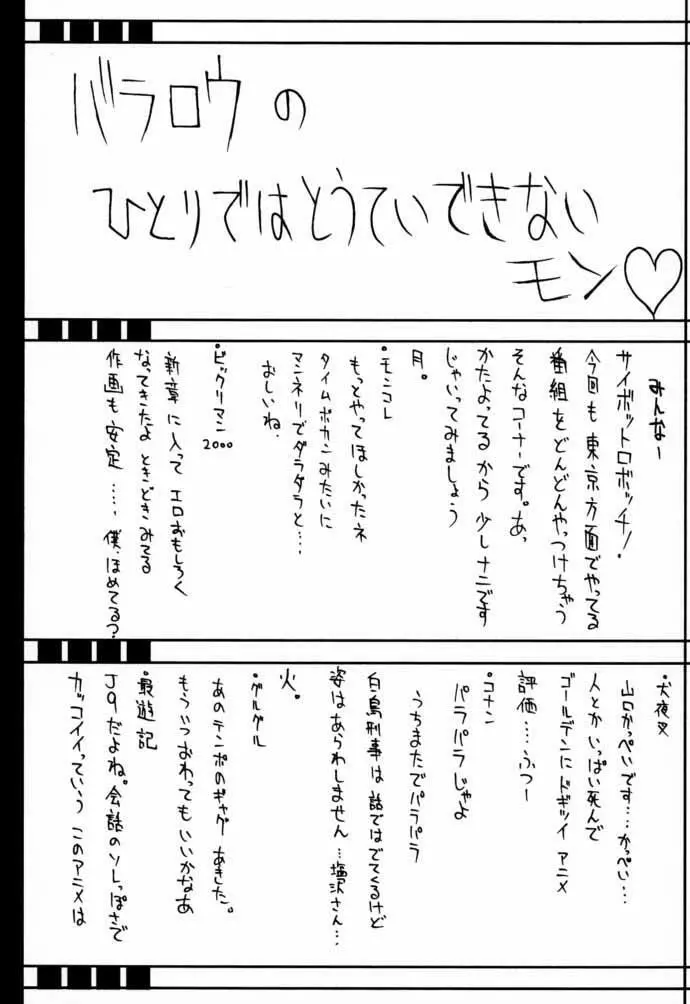 バラロウの
ひとりではとうていできない
モン♡
みんなー
サイボットロボッチ!
今回も東京方面でやってる
番組をどんどんやっつけちゃう
そんなコーナーです。あっ
かたよってるから少しナニです
じゃいってみましょう
月。
・モンコレ
もっとやってほしかったネ
タイムボカンみたいに
マンネリでダラダラと…
おしいね.
・ビックリマン2000
新章に入ってエロおもしろく
なってきたよときどきみてる
作画も安定……僕、ほめてる?
・犬夜叉
山口かっぺいです…かっぺい…
人とかいっぱい死んで
ゴールデンにドギツイアニメ
評価…ふつー
・コナン
パラパラじゃよ
うちまたでパラパラ
白鳥刑事は話ではでてくるけど
姿はあらわしません…塩沢さん…
火。
・グルグル
あのテンポのギャグあきた。
もういつおわってもいいかなあ
・最遊記
J9だよね。会話のソレっぽさで
カッコイイっていうこのアニメは